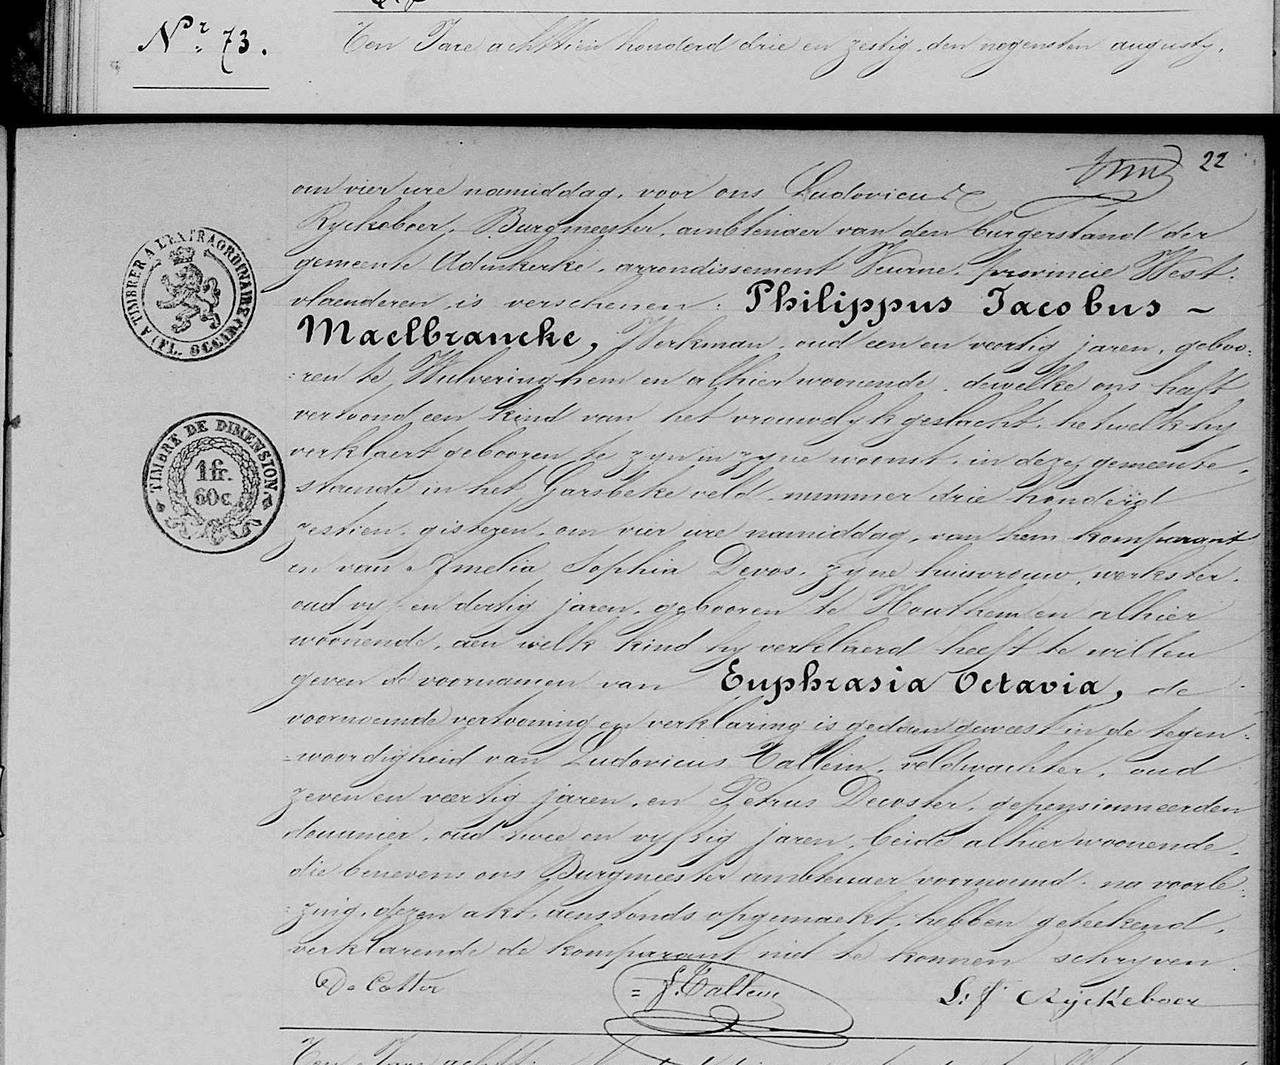 Nr. 73.
Een Jare achttien honderd drie en zestig, den negensten augusty,
22
om vier ure namiddag, voor ons Ludovicus
Ryckeboer, Burgmeester, ambtenaer van den burgerstand der
gemeente Adinkerke, arrondissement Veurne, provincie West-
vlaenderen is verschenen: Philippus Jacobus -
Maelbrancke, Werkman, oud een en veertig jaren, geboo:
:ren te Wulveringhem en alhier woonende, dewelke ons heeft
vertoond een kind van het vrouwelyk geslacht, hetwelk hy
verklaert gebooren te zyn in zyne woonst, in deze gemeente,
staende in het Garsbeke veld, nummer drie honderd
zestien, gisteren, om vier ure namiddag, van hem komparant
en van Amelia Sophia Devos, zyne huisvrouw, werkster,
oud vyf en dertig jaren, gebooren te Houthem en alhier
woonende, aen welk kind hy verklaerd heeft te willen
geven de voornamen van Euphrasia Octavia, de
voornoemde vertooning en verklaring is gedaen geweest in de tegen:
:woordigheid van Ludovicus Tallein, veldwachter, oud
zeven en veertig jaren, en Petrus Decoster, gepensionneerden
douanier, oud twee en vyftig jaren, beide alhier woonende,
die benevens ons Burgmeester ambtenaer voornoemd, na voorle:
:zing, dezen akt, aenstonds opgemaekt, hebben geteekend,
verklarende de komparant niet te konnen schryven
De Coster
L: J Ryckeboer
A TIMBRER A L'EXTRAORDINAIRE (FL. OCCID.)
TIMBRE DE DIMENSION
1fr.
60c.
Een Jare achttien